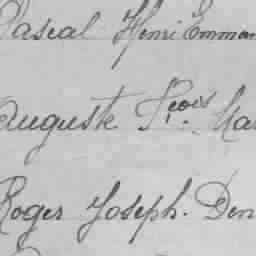 Pascal Henri Emman
Auguste Fçois Ma
Roger Joseph. Den